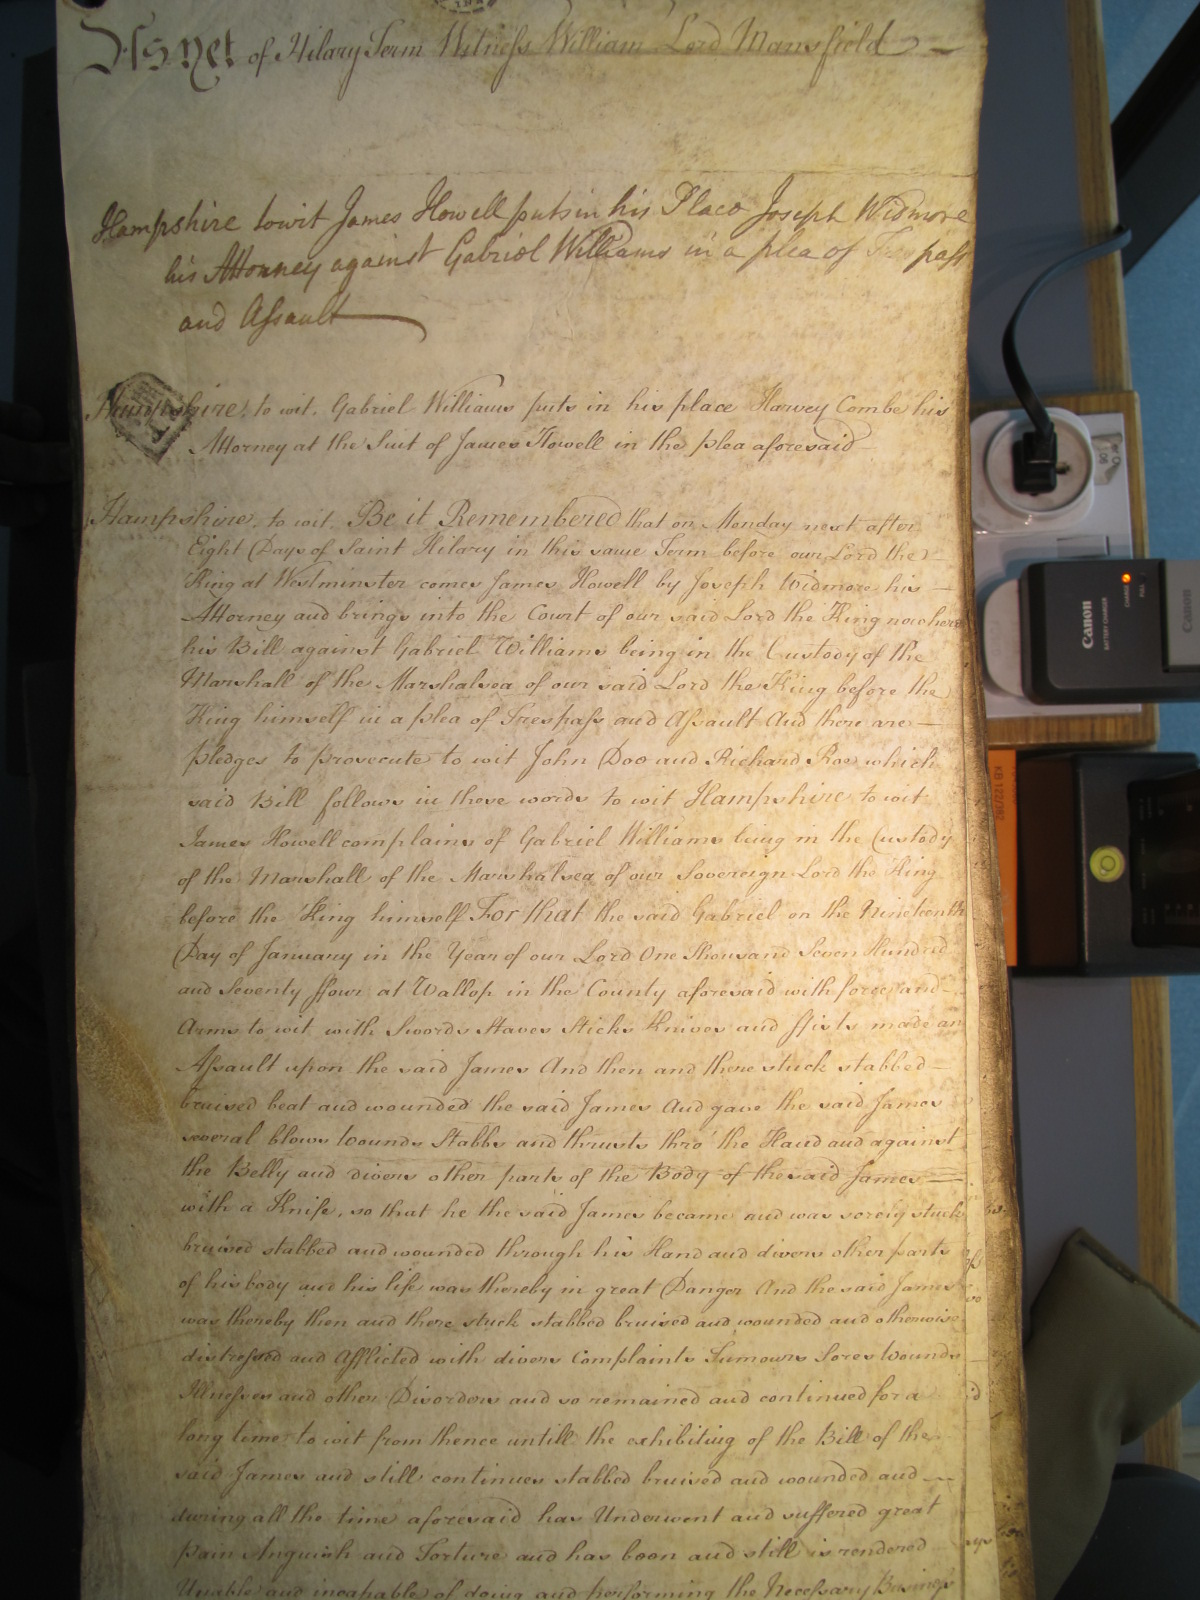 As yet of Hilary Term Witness William Lord Mansfield
Hampshire towit James Howell puts in his Place Joseph Widmore
his Attorney against Gabriel Williams in a plea of Trespass
and Assault
Hampshire. to wit. Gabriel Williams puts in his place Harvey Combe his
Attorney at the Suit of James Howell in the plea aforesaid
Hampshire. to wit. Be it Remembered that on Monday next after
Eight Days of Saint Hilary in this same Term before our Lord the
King at Westminster comes James Howell by Joseph Widmore his
Attorney and brings into the Court of our said Lord the King now here
his Bill against Gabriel Williams being in the Custody of the
Marshall of the Marshalsea of our said Lord the King before the
King himself in a plea of Trespass and Assault And there are
pledges to prosecute to wit John Doo and Richard Roe which
said Bill follows in these words to wit Hampshire to wit
James Howell complains of Gabriel Williams being in the Custody
of the Marshall of the Marshalsea of our Sovereign Lord the King
before the King himself For that the said Gabriel on the Nineteenth
Day of January in the Year of our Lord One Thousand Seven Hundred
and Seventy ffour at Wallop in the County aforesaid with force and
Arms to wit with Swords Staves Sticks Knives and ffists made an
Assault upon the said James And then and there stuck stabbed
bruised beat and wounded the said James And gave the said James
several blows wounds Stabbs and thrusts thro' the Hand and against
the Belly and divers other parts of the Body of the said James
with a Knife, so that he the said James became and was sorely stuck
bruised stabbed and wounded through his Hand and divers other parts
of his body and his life was thereby in great Danger And the said James
was thereby then and there stuck stabbed bruised and wounded and otherwise
distressed and Afflicted with divers Complaints Tumours Sores Wounds
Illnesses and other Disorders and so remained and continued for a
long time to wit from thence untill the exhibiting of the Bill of the
said James and still continues stabbed bruised and wounded and
during all the time aforesaid has Underwent and suffered great
pain Anguish and Torture and has been and still is rendered
Unable and incapable of doing and performing the Necessary Business
Canon
BATTERY CHARGER
CHARGE
FULL
Canon
KB 122/382